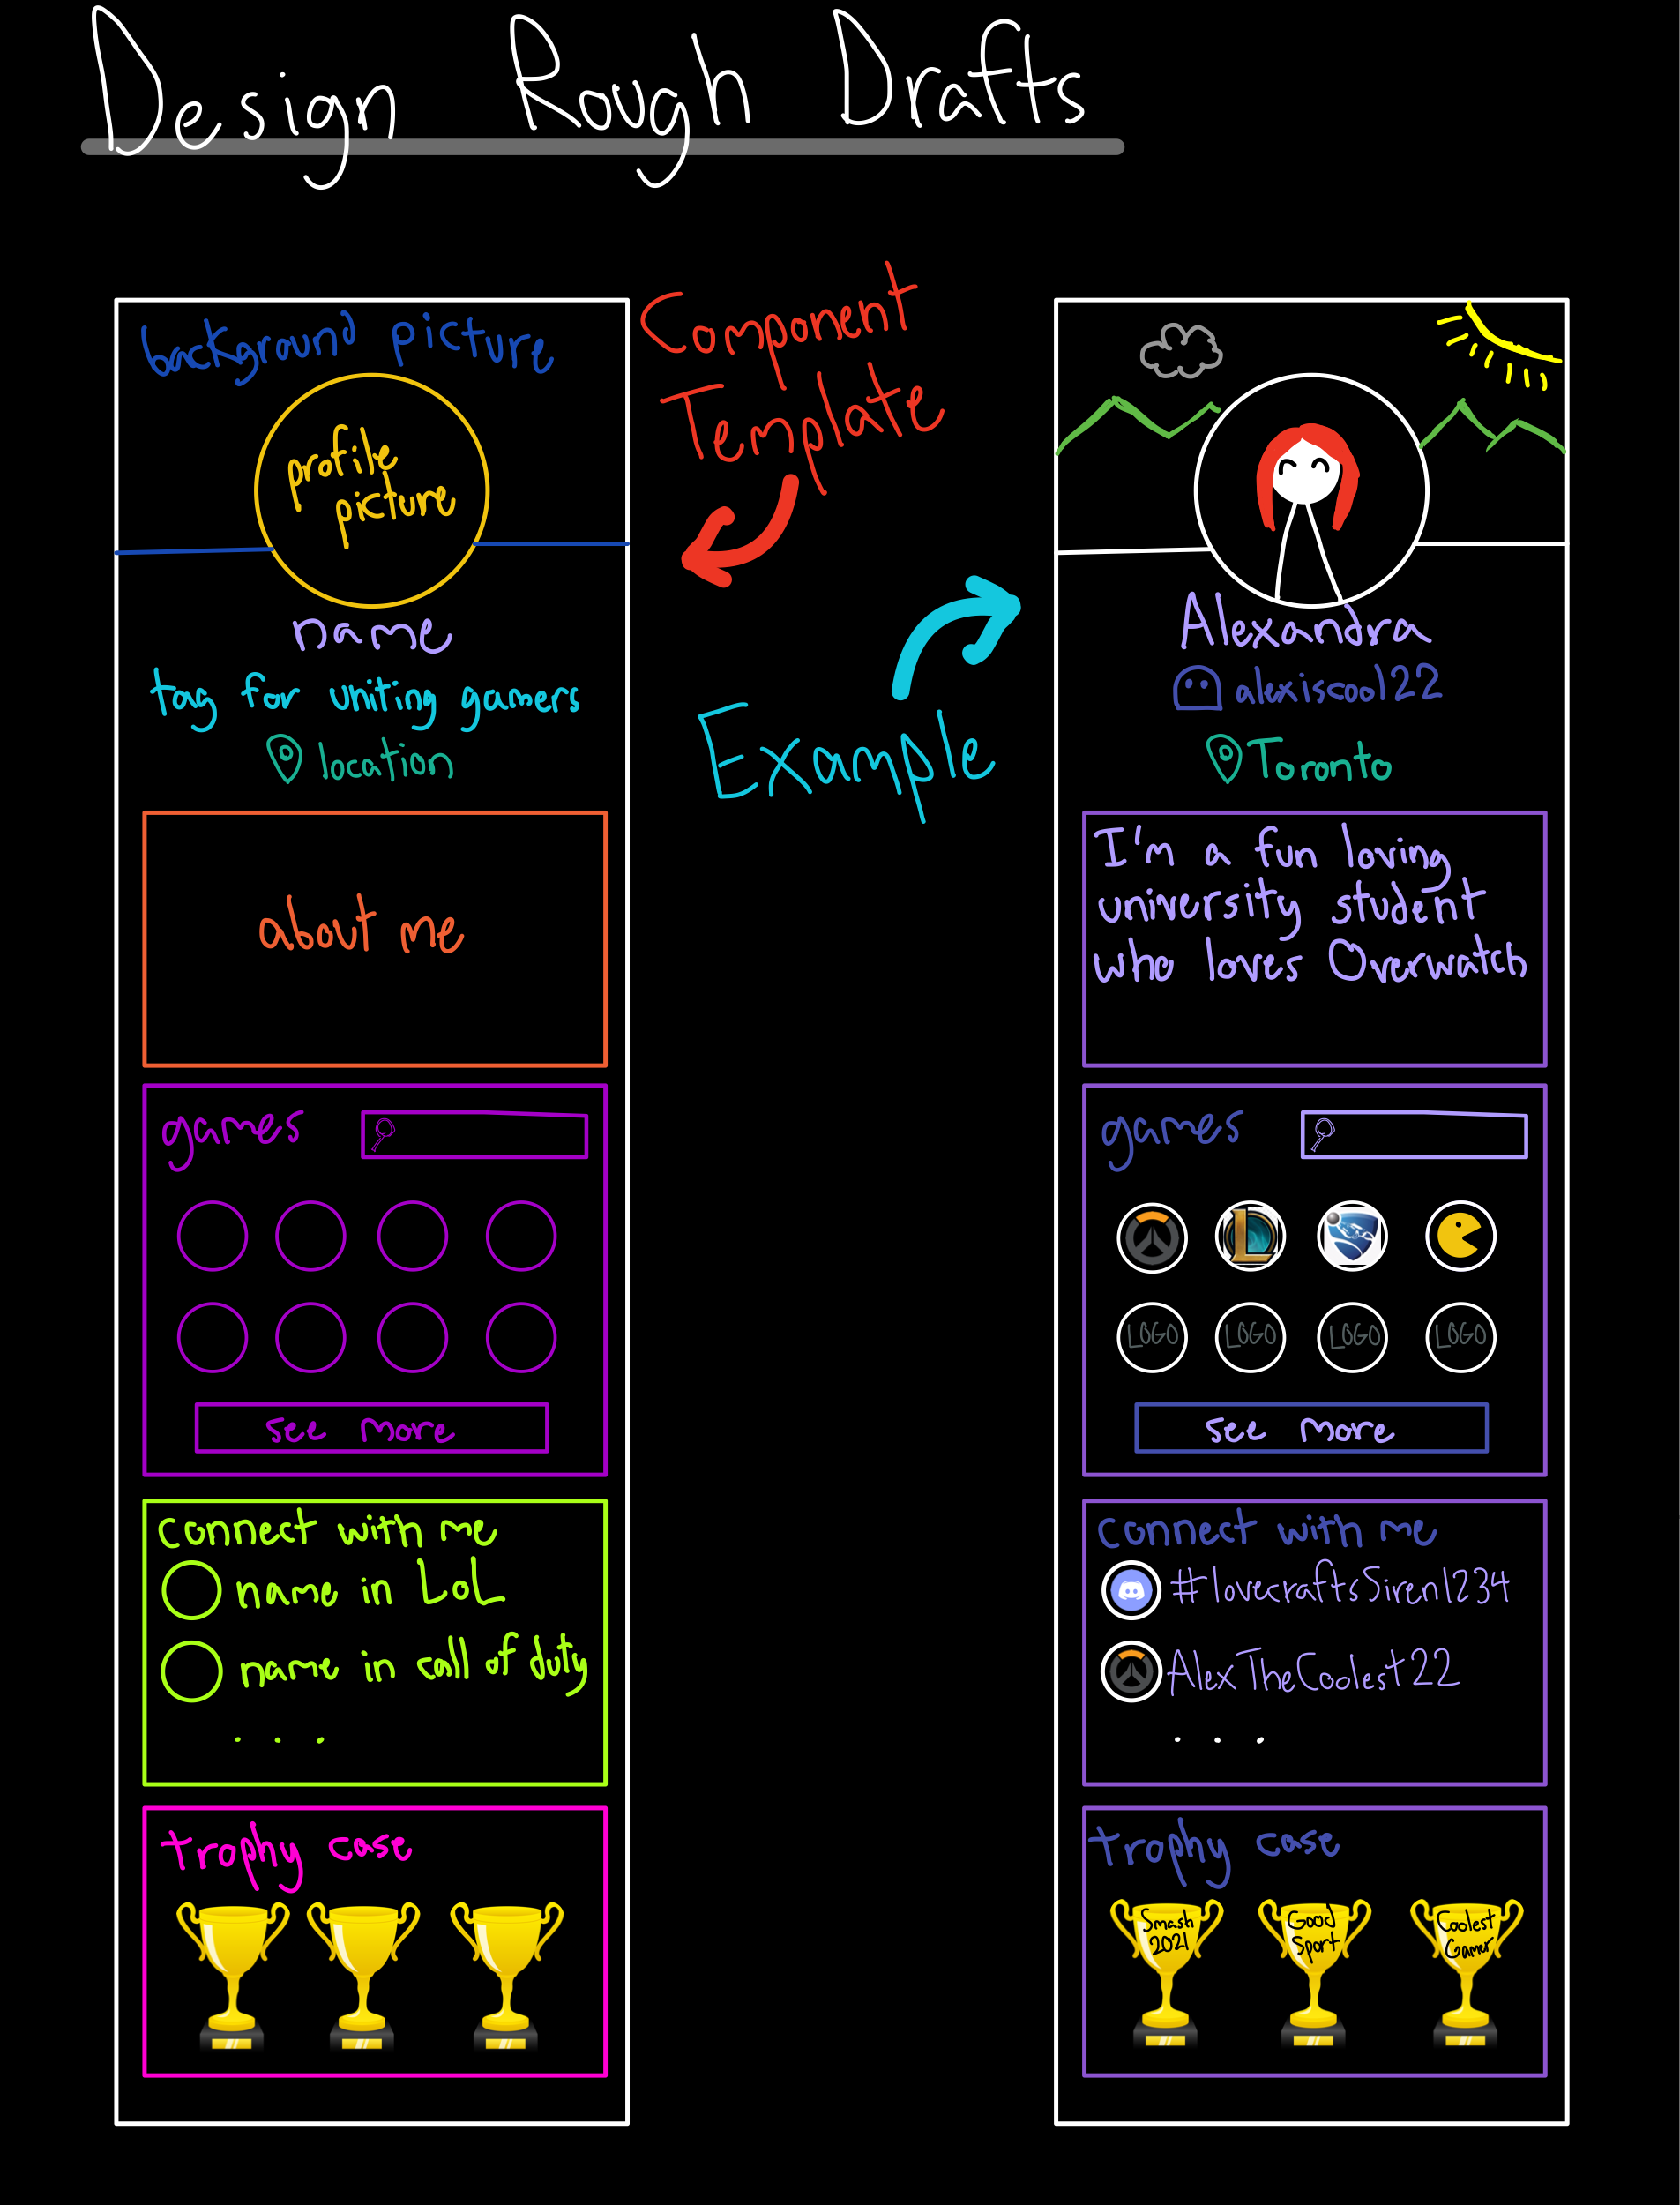 Design Rough Drafts
Component
Template
Example
background picture
profile
picture
name
tag for uniting gamers
location
about me
games
see more
connect with me
name in LoL
name in call of duty
. . .
trophy case
Alexandra
alexiscool122
Toronto
I'm a fun loving
university student
who loves Overwatch
games
LOGO LOGO LOGO LOGO
see more
connect with me
#lovecraftsSiren1234
AlexTheCoolest22
. . .
trophy case
Smash
2021
Good
Sport
Coolest
Gamer